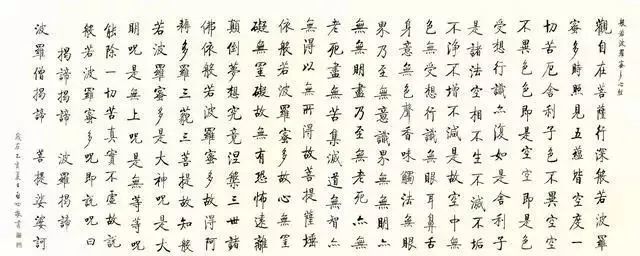 般若波羅蜜多心經
觀自在菩薩行深般若波羅
蜜多時照見五蘊皆空度一
切苦厄舍利子色不異空空
不異色色即是空空即是色
受想行識亦復如是舍利子
是諸法空相不生不滅不垢
不淨不增不減是故空中無
色無受想行識無眼耳鼻舌
身意無色聲香味觸法無眼
界乃至無意識界無無明亦
無無明盡乃至無老死亦無
老死盡無苦集滅道無智亦
無得以無所得故菩提薩埵
依般若波羅蜜多故心無罣
礙無罣礙故無有恐怖遠離
顛倒夢想究竟涅槃三世諸
佛依般若波羅蜜多故得阿
耨多羅三藐三菩提故知般
若波羅蜜多是大神呪是大
明呪是無上呪是無等等呪
能除一切苦真實不虛故說
般若波羅蜜多呪即說呪曰
揭諦揭諦 波羅揭諦
波羅僧揭諦 菩提娑婆訶
歲在乙亥